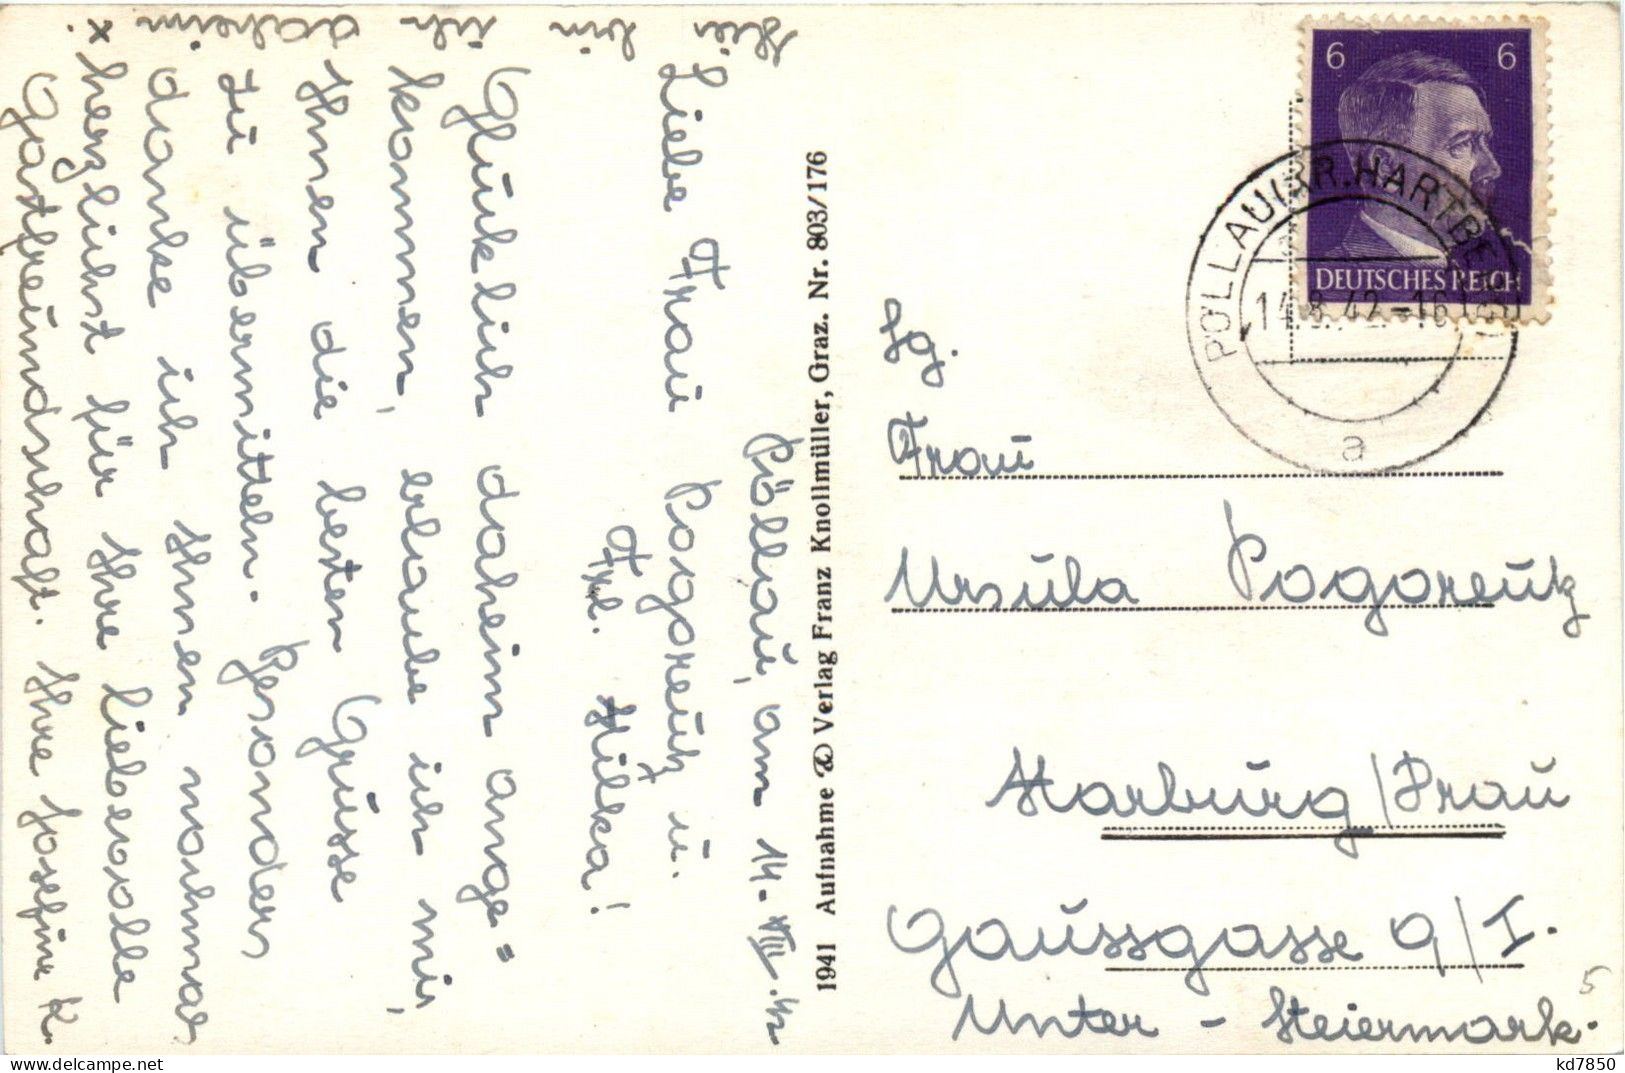 Pöllau, am 14. VIII. 42
Liebe Frau Pogoreutz u.
Frl. Hilka!
Glücklich daheim ange=
kommen, erlaube ich mir,
Ihnen die besten Grüsse
zu übermitteln. Besonders
danke ich Ihnen nochmal
herzlichst für Ihre liebevolle
Gastfreundschaft. Ihre Josefine K.
x Hier bin ich daheim
1941 Aufnahme & Verlag Franz Knollmüller, Graz. Nr. 803/176
6 6
DEUTSCHES REICH
PÖLLAU (KR. HARTBERG
14.8.42.-16
a
Frau
Ursula Pogoreutz
Marburg/Drau
Gaussgasse 9/I.
Unter - Steiermark.
5
kd7850